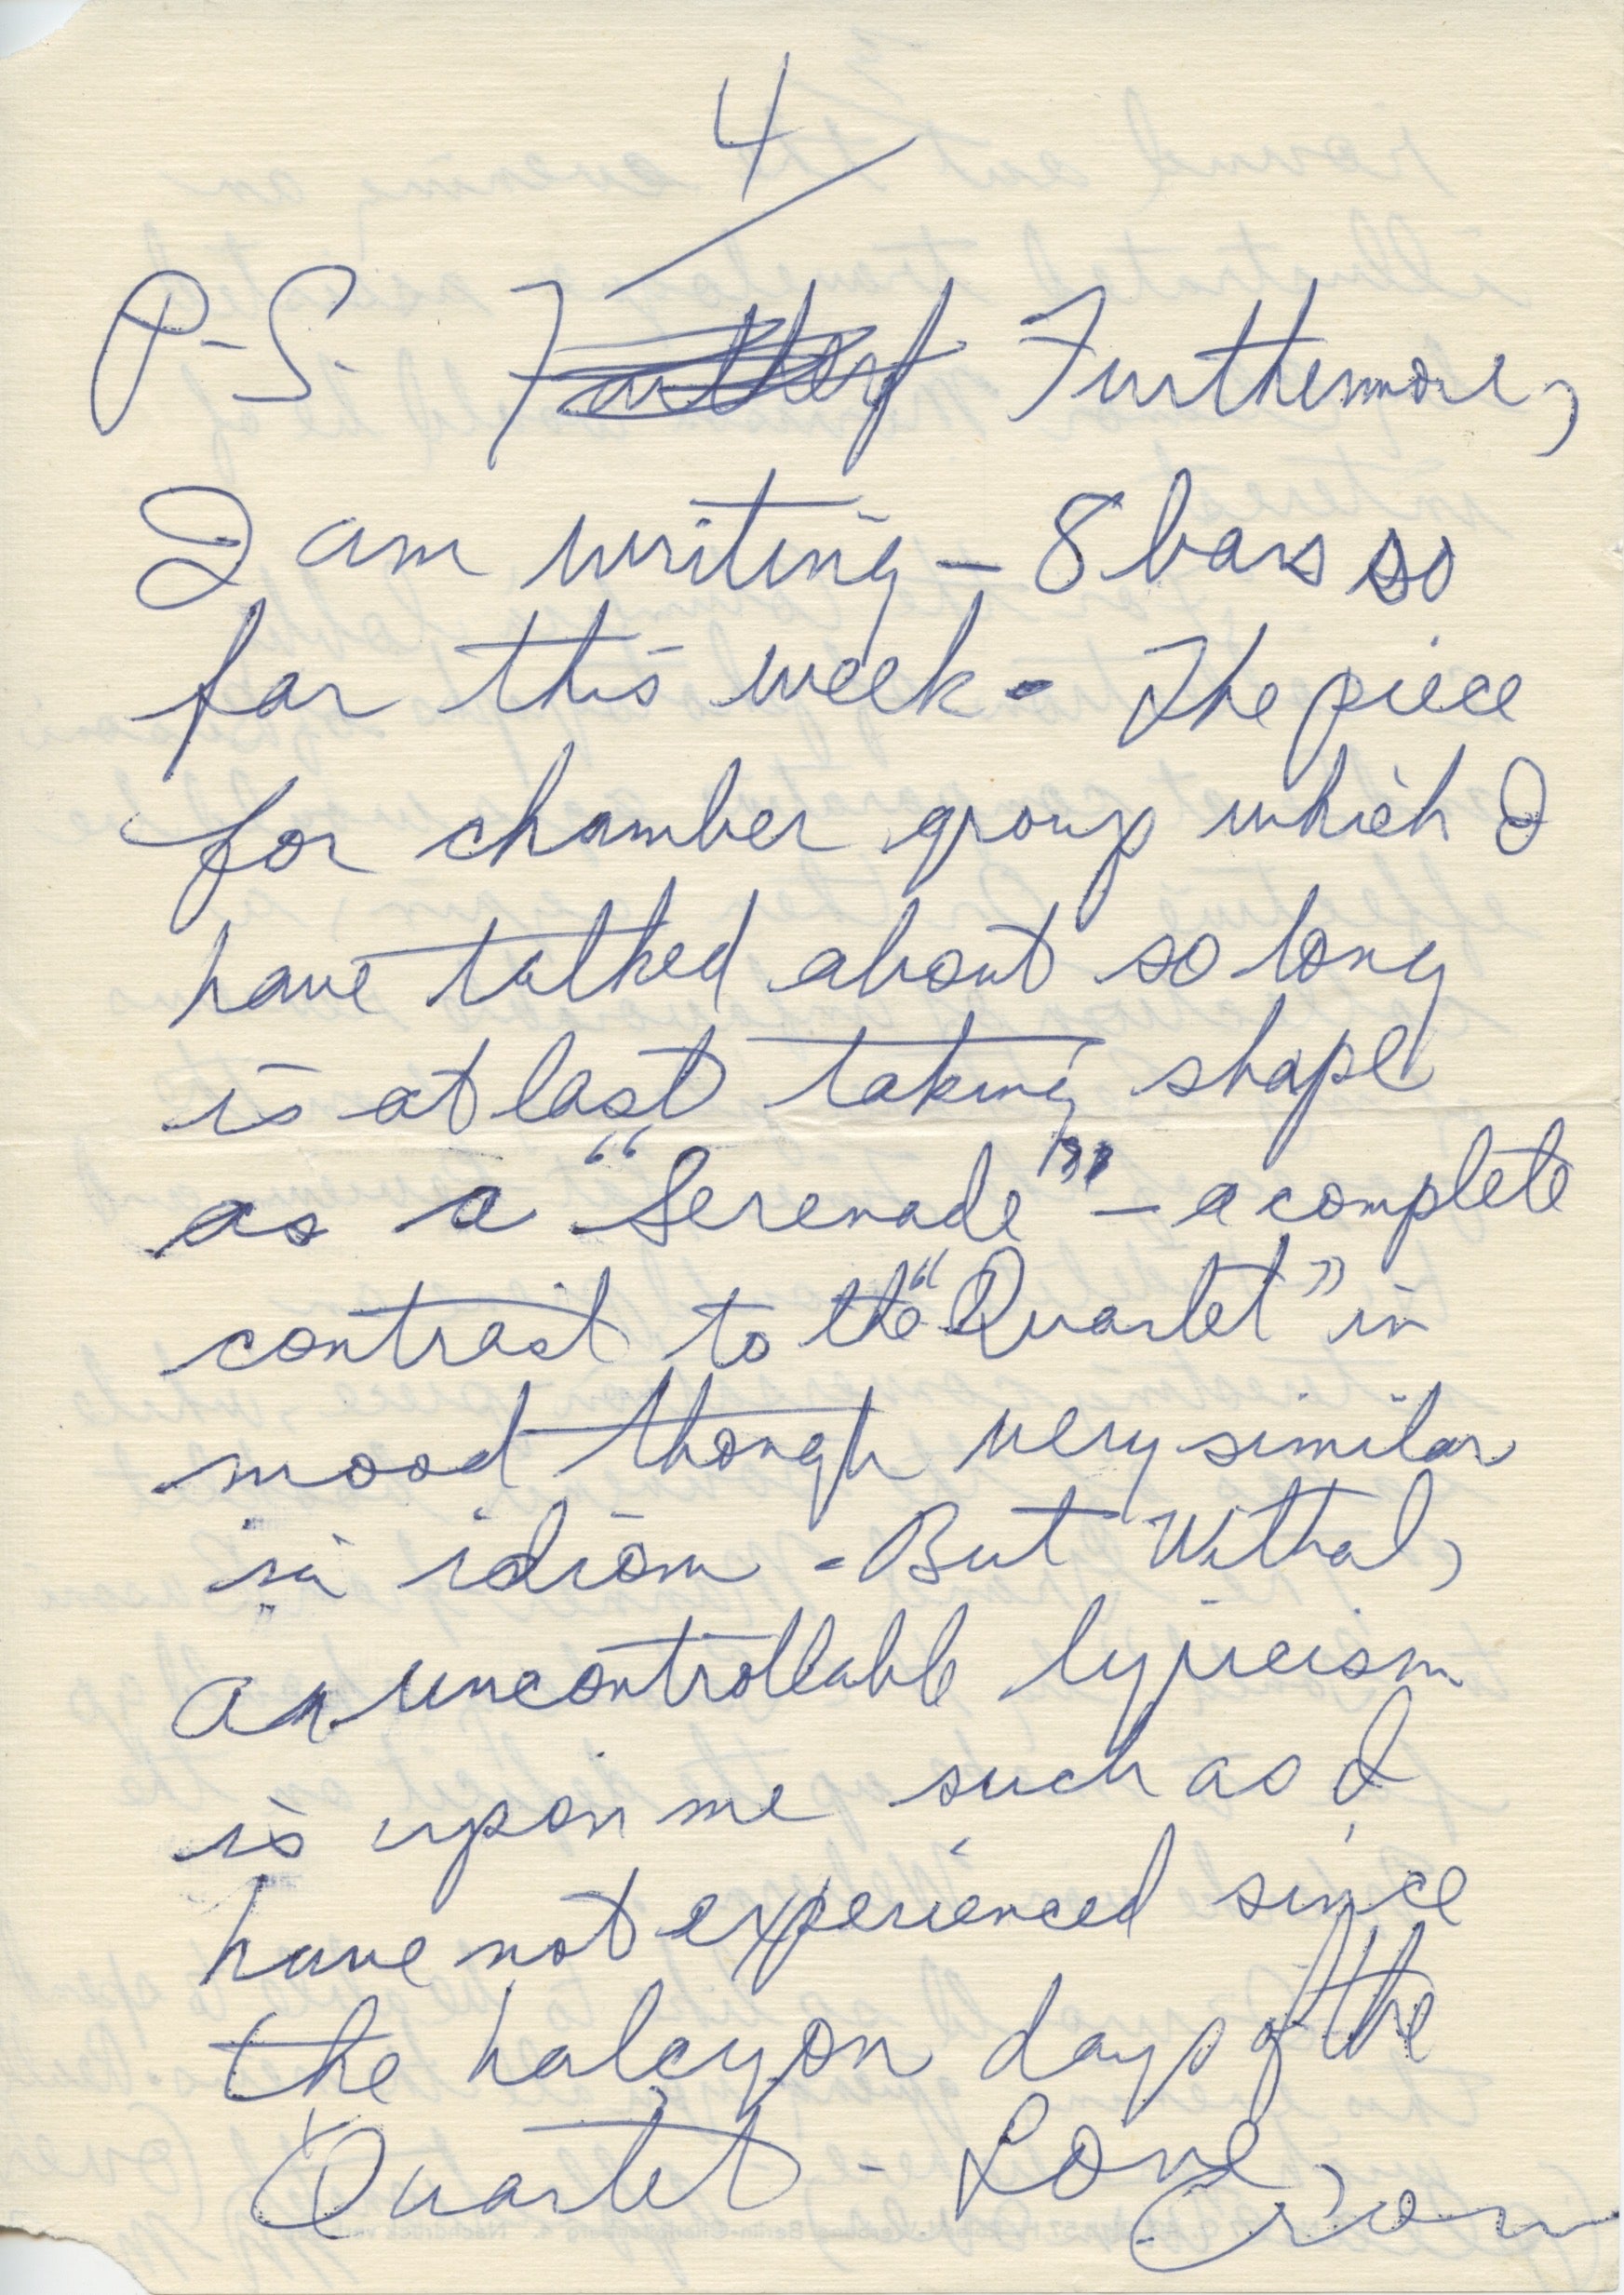 4
P.S. Furthermore,
I am writing – 8 bars so
far this week - The piece
for chamber group which I
have talked about so long
is at last taking shape
as a "Serenade" – a complete
contrast to the "Quartet" in
mood though very similar
in idiom - But Withal,
an uncontrollable lyricism
is upon me such as I
have not experienced since
the halcyon days of the
Quartet - Love,